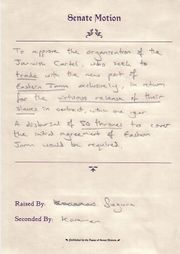 Senate Motion
To approve the organisation of the
Jarvish Cartel, who seek to
trade with the new port of
Eastern Jarm exclusively, in return
for the virtuous release of their
slaves in contract, within one year.
A disbursal of 50 thrones to cover
the initial agreement of Eastern
Jarm would be required.
Raised By:
Seconded By: